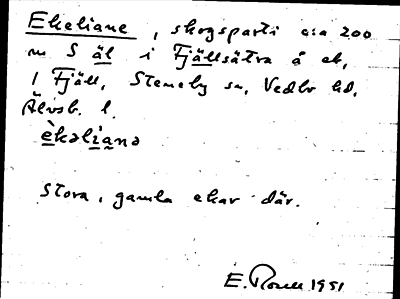 Ekeliane, skogsparti c:a 200
m S äl i Fjällsätra å ek,
1 Fjäll, Steneby sn, Vedbo hd,
Älvsb. l.
èkəlìanə
Stora, gamla ekar där.
E. 1951